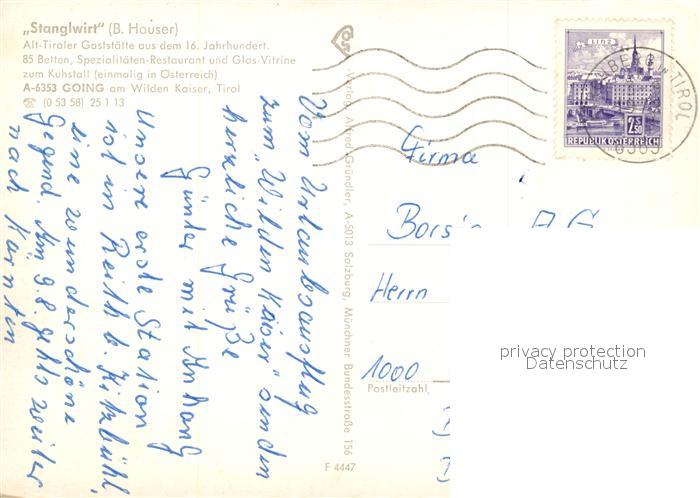 „Stanglwirt“ (B. Hauser)
Alt-Tiroler Gaststätte aus dem 16. Jahrhundert.
85 Betten, Spezialitäten-Restaurant und Glas-Vitrine
zum Kuhstall (einmalig in Österreich)
A-6353 GOING am Wilden Kaiser, Tirol
☎ (0 53 58) 25 1 13
Vom Urlaubsausflug
zum „Wilden Kaiser“ senden
herzliche Grüße
Günter mit Anhang
Unsere erste Station
ist in Reith b. Kitzbühl,
eine wunderschöne
Gegend. Am 9.8. gehts weiter
nach Kärnten
Verlag Alfred Gründler, A-5013 Salzburg, Münchner Bundesstraße 156
F 4447
LINZ
2.50
REPUBLIK ÖSTERREICH
TIROL
Firma
AG
Herrn
1000
Postleitzahl
privacy protection
Datenschutz